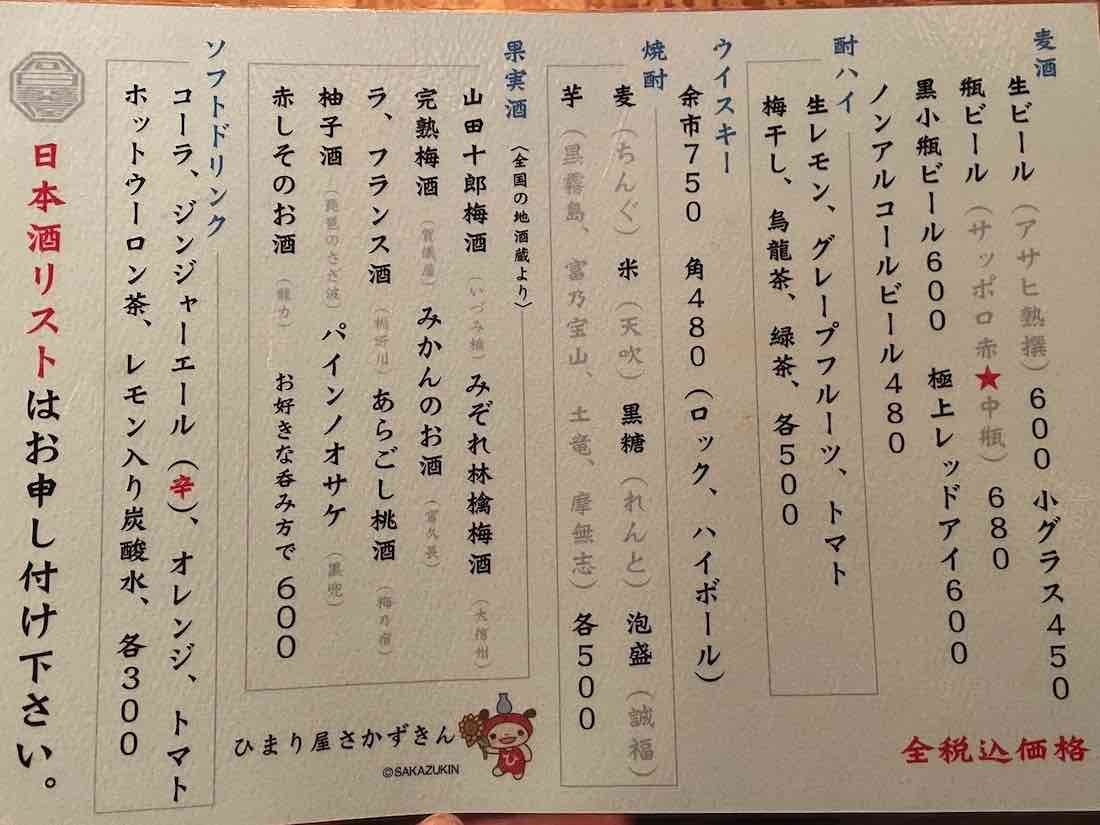 麦酒
生ビール（アサヒ熟撰）600 小グラス450
瓶ビール（サッポロ赤★中瓶）680
黒小瓶ビール600 極上レッドアイ600
ノンアルコールビール480
酎ハイ
生レモン、グレープフルーツ、トマト
梅干し、烏龍茶、緑茶、各500
ウイスキー
余市750 角480（ロック、ハイボール）
焼酎
麦（ちんぐ）米（天吹）黒糖（れんと）泡盛（誠福）
芋（黒霧島、富乃宝山、土竜、摩無志）各500
果実酒（全国の地酒蔵より）
山田十郎梅酒（いづみ橋）みぞれ林檎梅酒（大信州）
完熟梅酒（賀儀屋）みかんのお酒（富久長）
ラ、フランス酒（栃所川）あらごし桃酒（梅乃宿）
柚子酒（琵琶のささ波）パインノオサケ（黒兜）
赤しそのお酒（龍力）お好きな呑み方で600
ソフトドリンク
コーラ、ジンジャーエール（辛）、オレンジ、トマト
ホットウーロン茶、レモン入り炭酸水、各300
日本酒リストはお申し付け下さい。
全税込価格
ひ
ひまり屋さかずきん
©SAKAZUKIN